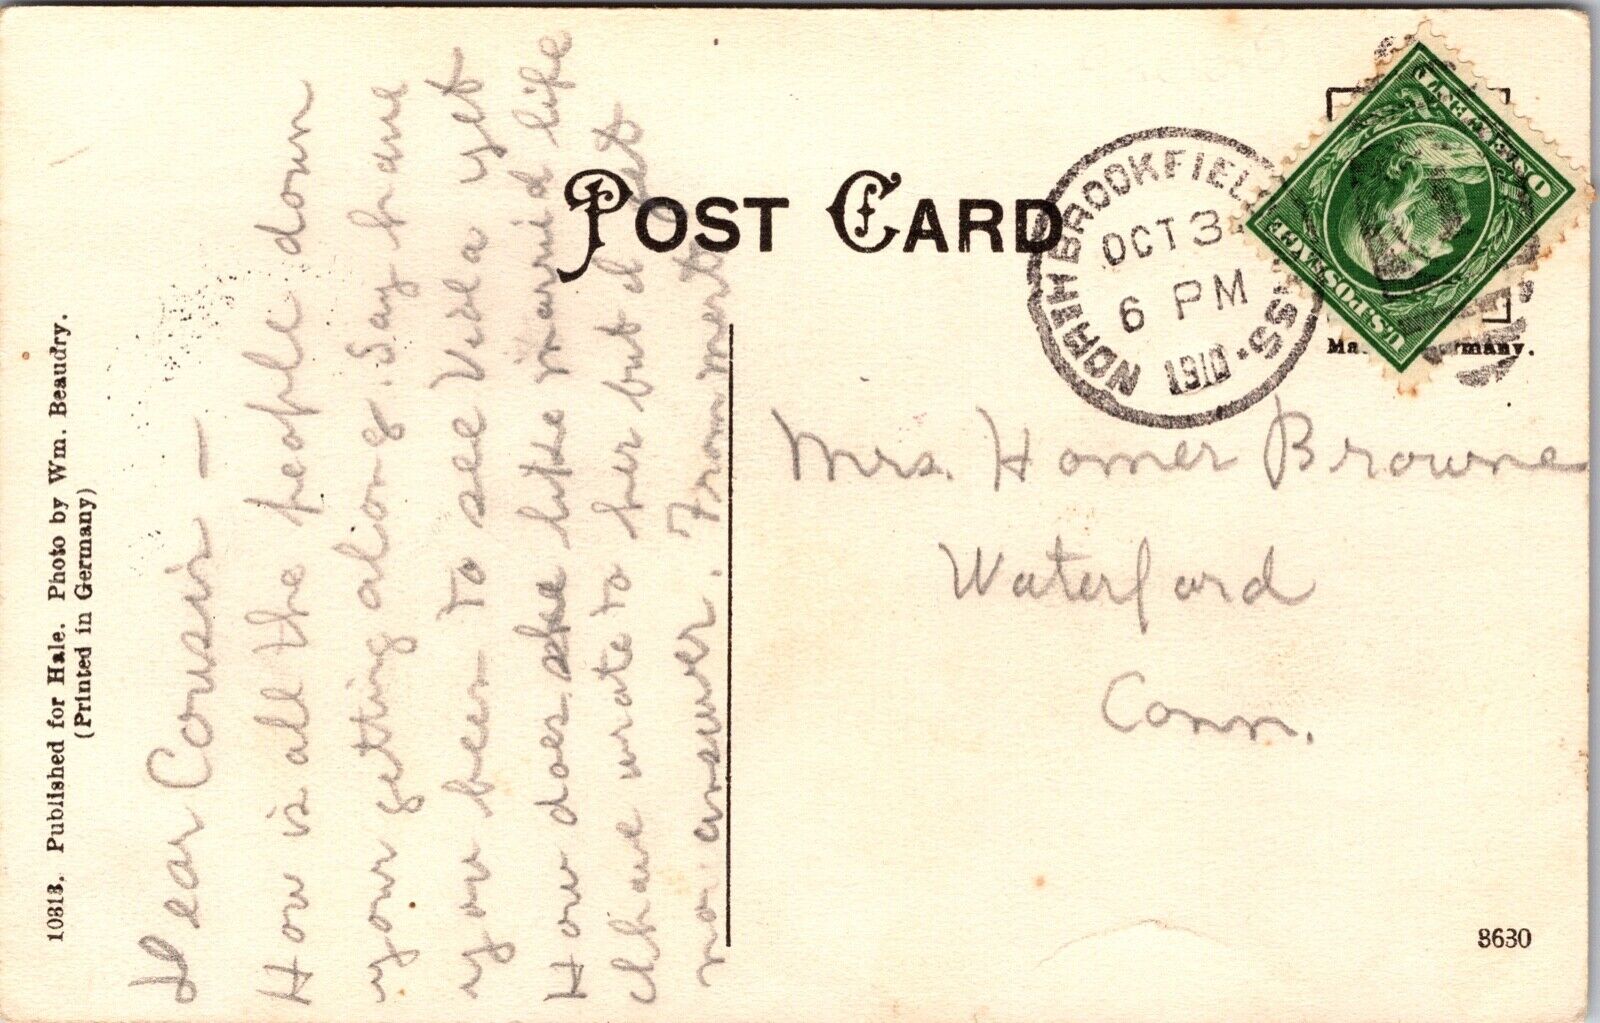 10818. Published for Hale. Photo by Wm. Beaudry.
(Printed in Germany)
Dear Cousin —
How is all the people down
your getting along. Say have
you been to see Vida yet
How does she like married life
I have wrote to her but I get
no answer. From
POST CARD
NORTH BROOKFIELD
OCT 3
6 PM
1910
MASS.
U.S. POSTAGE
ONE CENT
Germany.
Mrs. Homer Browne
Waterford
Conn.
8630